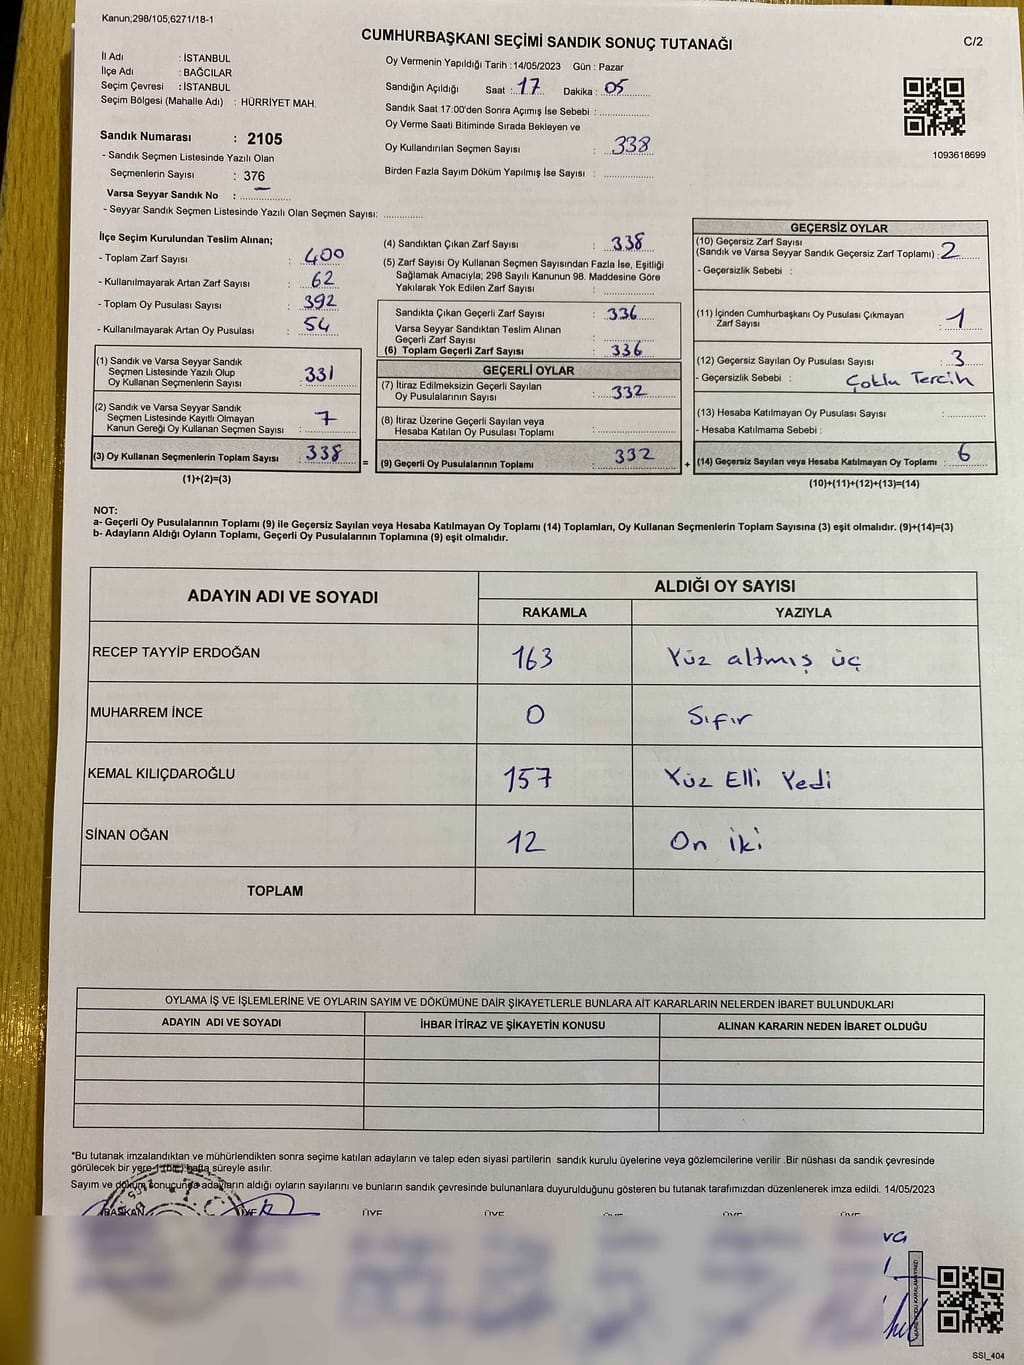 Kanun;298/105;6271/18-1
CUMHURBAŞKANI SEÇİMİ SANDIK SONUÇ TUTANAĞI
C/2
İl Adı : İSTANBUL
İlçe Adı : BAĞCILAR
Seçim Çevresi : İSTANBUL
Seçim Bölgesi (Mahalle Adı) : HÜRRİYET MAH.
Sandık Numarası : 2105
- Sandık Seçmen Listesinde Yazılı Olan
Seçmenlerin Sayısı : 376
Varsa Seyyar Sandık No : —
- Seyyar Sandık Seçmen Listesinde Yazılı Olan Seçmen Sayısı: ..............
Oy Vermenin Yapıldığı Tarih : 14/05/2023 Gün : Pazar
Sandığın Açıldığı Saat : 17 Dakika : 05
Sandık Saat 17:00'den Sonra Açımış İse Sebebi : ..............
Oy Verme Saati Bitiminde Sırada Bekleyen ve
Oy Kullandırılan Seçmen Sayısı : 338
Birden Fazla Sayım Döküm Yapılmış İse Sayısı : ..............
1093618699
İlçe Seçim Kurulundan Teslim Alınan;
- Toplam Zarf Sayısı : 400
- Kullanılmayarak Artan Zarf Sayısı : 62
- Toplam Oy Pusulası Sayısı : 392
- Kullanılmayarak Artan Oy Pusulası : 54
(1) Sandık ve Varsa Seyyar Sandık
Seçmen Listesinde Yazılı Olup
Oy Kullanan Seçmenlerin Sayısı : 331
(2) Sandık ve Varsa Seyyar Sandık
Seçmen Listesinde Kayıtlı Olmayan
Kanun Gereği Oy Kullanan Seçmen Sayısı : 7
(3) Oy Kullanan Seçmenlerin Toplam Sayısı : 338
(1)+(2)=(3)
=
(4) Sandıktan Çıkan Zarf Sayısı : 338
(5) Zarf Sayısı Oy Kullanan Seçmen Sayısından Fazla İse, Eşitliği
Sağlamak Amacıyla; 298 Sayılı Kanunun 98. Maddesine Göre
Yakılarak Yok Edilen Zarf Sayısı : ..............
Sandıkta Çıkan Geçerli Zarf Sayısı : 336
Varsa Seyyar Sandıktan Teslim Alınan
Geçerli Zarf Sayısı : ..............
(6) Toplam Geçerli Zarf Sayısı : 336
GEÇERLİ OYLAR
(7) İtiraz Edilmeksizin Geçerli Sayılan
Oy Pusulalarının Sayısı : 332
(8) İtiraz Üzerine Geçerli Sayılan veya
Hesaba Katılan Oy Pusulası Toplamı : ..............
(9) Geçerli Oy Pusulalarının Toplamı : 332
+
GEÇERSİZ OYLAR
(10) Geçersiz Zarf Sayısı
(Sandık ve Varsa Seyyar Sandık Geçersiz Zarf Toplamı) : 2
- Geçersizlik Sebebi :
(11) İçinden Cumhurbaşkanı Oy Pusulası Çıkmayan
Zarf Sayısı : 1
(12) Geçersiz Sayılan Oy Pusulası Sayısı : 3
- Geçersizlik Sebebi : Çoklu Tercih
(13) Hesaba Katılmayan Oy Pusulası Sayısı : ..............
- Hesaba Katılmama Sebebi :
(14) Geçersiz Sayılan veya Hesaba Katılmayan Oy Toplamı : 6
(10)+(11)+(12)+(13)=(14)
NOT:
a- Geçerli Oy Pusulalarının Toplamı (9) ile Geçersiz Sayılan veya Hesaba Katılmayan Oy Toplamı (14) Toplamları, Oy Kullanan Seçmenlerin Toplam Sayısına (3) eşit olmalıdır. (9)+(14)=(3)
b- Adayların Aldığı Oyların Toplamı, Geçerli Oy Pusulalarının Toplamına (9) eşit olmalıdır.
ADAYIN ADI VE SOYADI
ALDIĞI OY SAYISI
RAKAMLA YAZIYLA
RECEP TAYYİP ERDOĞAN 163 Yüz altmış üç
MUHARREM İNCE 0 Sıfır
KEMAL KILIÇDAROĞLU 157 Yüz Elli Yedi
SİNAN OĞAN 12 On iki
TOPLAM
OYLAMA İŞ VE İŞLEMLERİNE VE OYLARIN SAYIM VE DÖKÜMÜNE DAİR ŞİKAYETLERLE BUNLARA AİT KARARLARIN NELERDEN İBARET BULUNDUKLARI
ADAYIN ADI VE SOYADI İHBAR İTİRAZ VE ŞİKAYETİN KONUSU ALINAN KARARIN NEDEN İBARET OLDUĞU
*Bu tutanak imzalandıktan ve mühürlendikten sonra seçime katılan adayların ve talep eden siyasi partilerin sandık kurulu üyelerine veya gözlemcilerine verilir .Bir nüshası da sandık çevresinde
görülecek bir yere 1 (bir) hafta süreyle asılır.
Sayım ve döküm sonucunda adayların aldığı oyların sayılarını ve bunların sandık çevresinde bulunanlara duyurulduğunu gösteren bu tutanak tarafımızdan düzenlenerek imza edildi. 14/05/2023
BAŞKAN ÜYE ÜYE ÜYE ÜYE ÜYE ÜYE
SSI_404